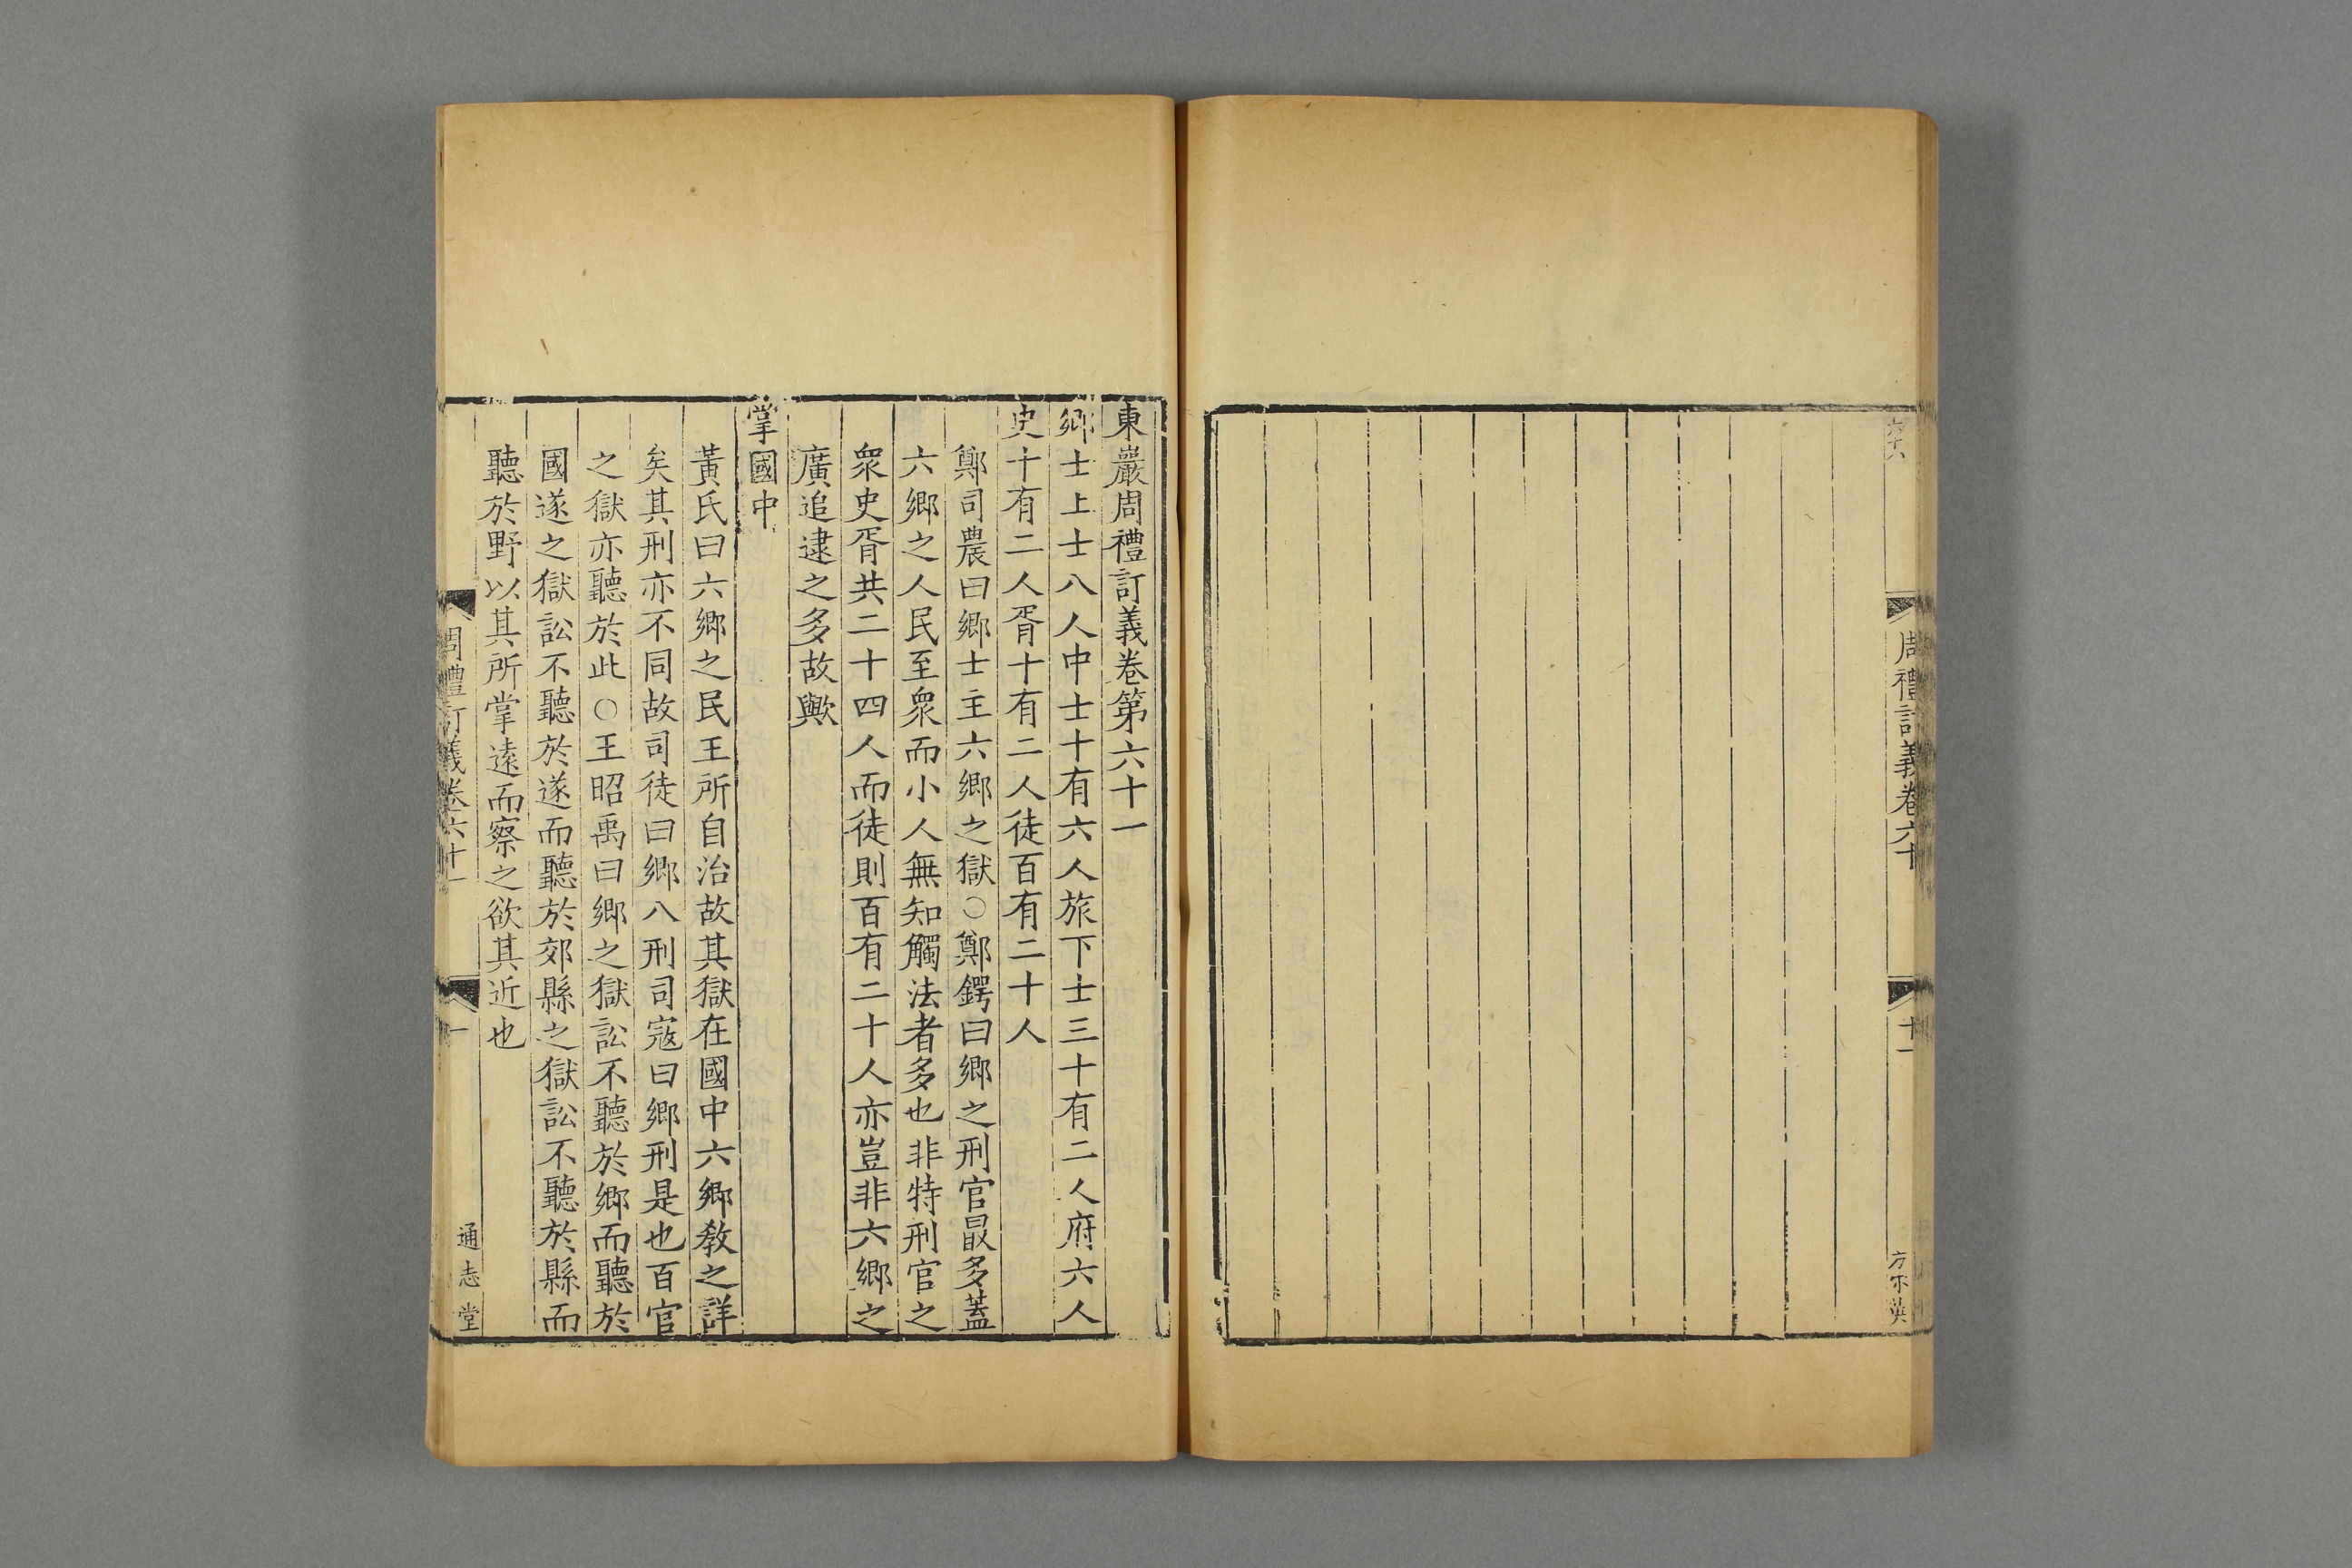 周禮訂義卷六十
十一
東巖周禮訂義卷第六十一
鄉士上士八人中士十有六人旅下士三十有二人府六人
史十有二人胥十有二人徒百有二十人
鄭司農曰鄉士主六鄉之獄○鄭鍔曰鄉之刑官最多蓋
六鄉之人民至衆而小人無知觸法者多也非特刑官之
衆史胥共二十四人而徒則百有二十人亦豈非六鄉之
廣追逮之多故歟
掌國中
黃氏曰六鄉之民王所自治故其獄在國中六鄉教之詳
矣其刑亦不同故司徒曰鄉八刑司寇曰鄉刑是也百官
之獄亦聽於此○王昭禹曰鄉之獄訟不聽於鄉而聽於
國遂之獄訟不聽於遂而聽於郊縣之獄訟不聽於縣而
聽於野以其所掌遠而察之欲其近也
周禮訂義卷六十一
一
通志堂